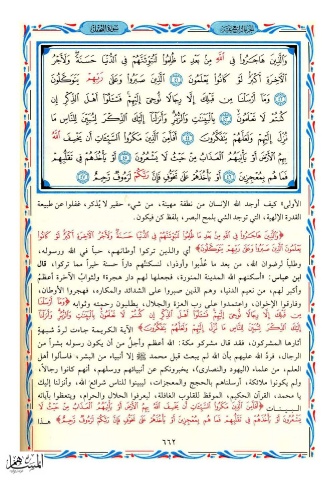 سورة النحل
والذين هاجروا في الله من بعد ما ظلموا لنبوئنهم في الدنيا حسنة ولأجر
الآخرة أكبر لو كانوا يعلمون ٤١ الذين صبروا وعلى ربهم يتوكلون
٤٢ وما أرسلنا من قبلك إلا رجالا نوحي إليهم فسئلوا أهل الذكر إن
كنتم لا تعلمون ٤٣ بالبينت والزبر وأنزلنا إليك الذكر لتبين للناس ما
نزل إليهم ولعلهم يتفكرون ٤٤ أفأمن الذين مكروا السيئات أن يخسف الله
بهم الأرض أو يأتيهم العذاب من حيث لا يشعرون ٤٥ أو يأخذهم في تقلبهم
فما هم بمعجزين ٤٦ أو يأخذهم على تخوف فإن ربكم لرءوف رحيم ٤٧
الأولى؟ كيف أوجد الله الإنسان من نطفة مهينة، من شيء حقير لا يُذكر، فغفلوا عن طبيعة
القدرة الإلهية، التي توجد الشيء بلمح البصر، بلفظ كن فيكون.
﴿والذين هاجروا في الله من بعد ما ظلموا لنبوئنهم في الدنيا حسنة ولأجر الآخرة أكبر لو كانوا
يعلمون الذين صبروا وعلى ربهم يتوكلون﴾ أي والذين تركوا أوطانهم، حباً في الله ورسوله،
وطلباً لرضوان الله، من بعد ما عُذّبوا وأوذوا، لنسكننهم داراً حسنة خيراً مما تركوا، قال
ابن عباس: «أسكنهم الله المدينة المنورة، فجعلها لهم دار هجرة» ولثوابُ الآخرة أعظمُ
وأكبر لهم، من نعيم الدنيا، وهم الذين صبروا على الشدائد والمكاره، فهجروا الأوطان،
وفارقوا الإخوان، واعتمدوا على رب العزة والجلال، يطلبون رحمته وثوابه ﴿وما أرسلنا
من قبلك إلا رجالا نوحي إليهم فسئلوا أهل الذكر إن كنتم لا تعلمون بالبينات والزبر وأنزلنا
إليك الذكر لتبين للناس ما نزل إليهم ولعلهم يتفكرون﴾ الآية الكريمة جاءت لردّ شبهةٍ
أثارها المشركون، فقد قال مشركو مكة: الله أعظم وأجلّ من أن يكون رسوله بشراً من
الرجال، فردّ الله عليهم بأن الله لم يبعث قبل محمد ﷺ إلا أنبياء من البشر، فاسألوا أهل
العلم، من علماء (اليهود والنصارى)، يخبرونكم عن أنبيائهم ورسلهم، أنهم كانوا رجالاً،
ولم يكونوا ملائكة، أرسلناهم بالحجج والمعجزات، ليبينوا للناس شرائع الله، وأنزلنا إليك
يا محمد، القرآن الحكيم، الموقظ للقلوب الغافلة، ليعرفوا الحلال والحرام، ويتعظوا بآياته
﴿أفأمن الذين مكروا السيئات أن يخسف الله بهم الأرض أو يأتيهم العذاب من حيث لا
يشعرون أو يأخذهم في تقلبهم فما هم بمعجزين أو يأخذهم على تخوف فإن ربكم لرءوف رحيم﴾ هذا
٦٦٢